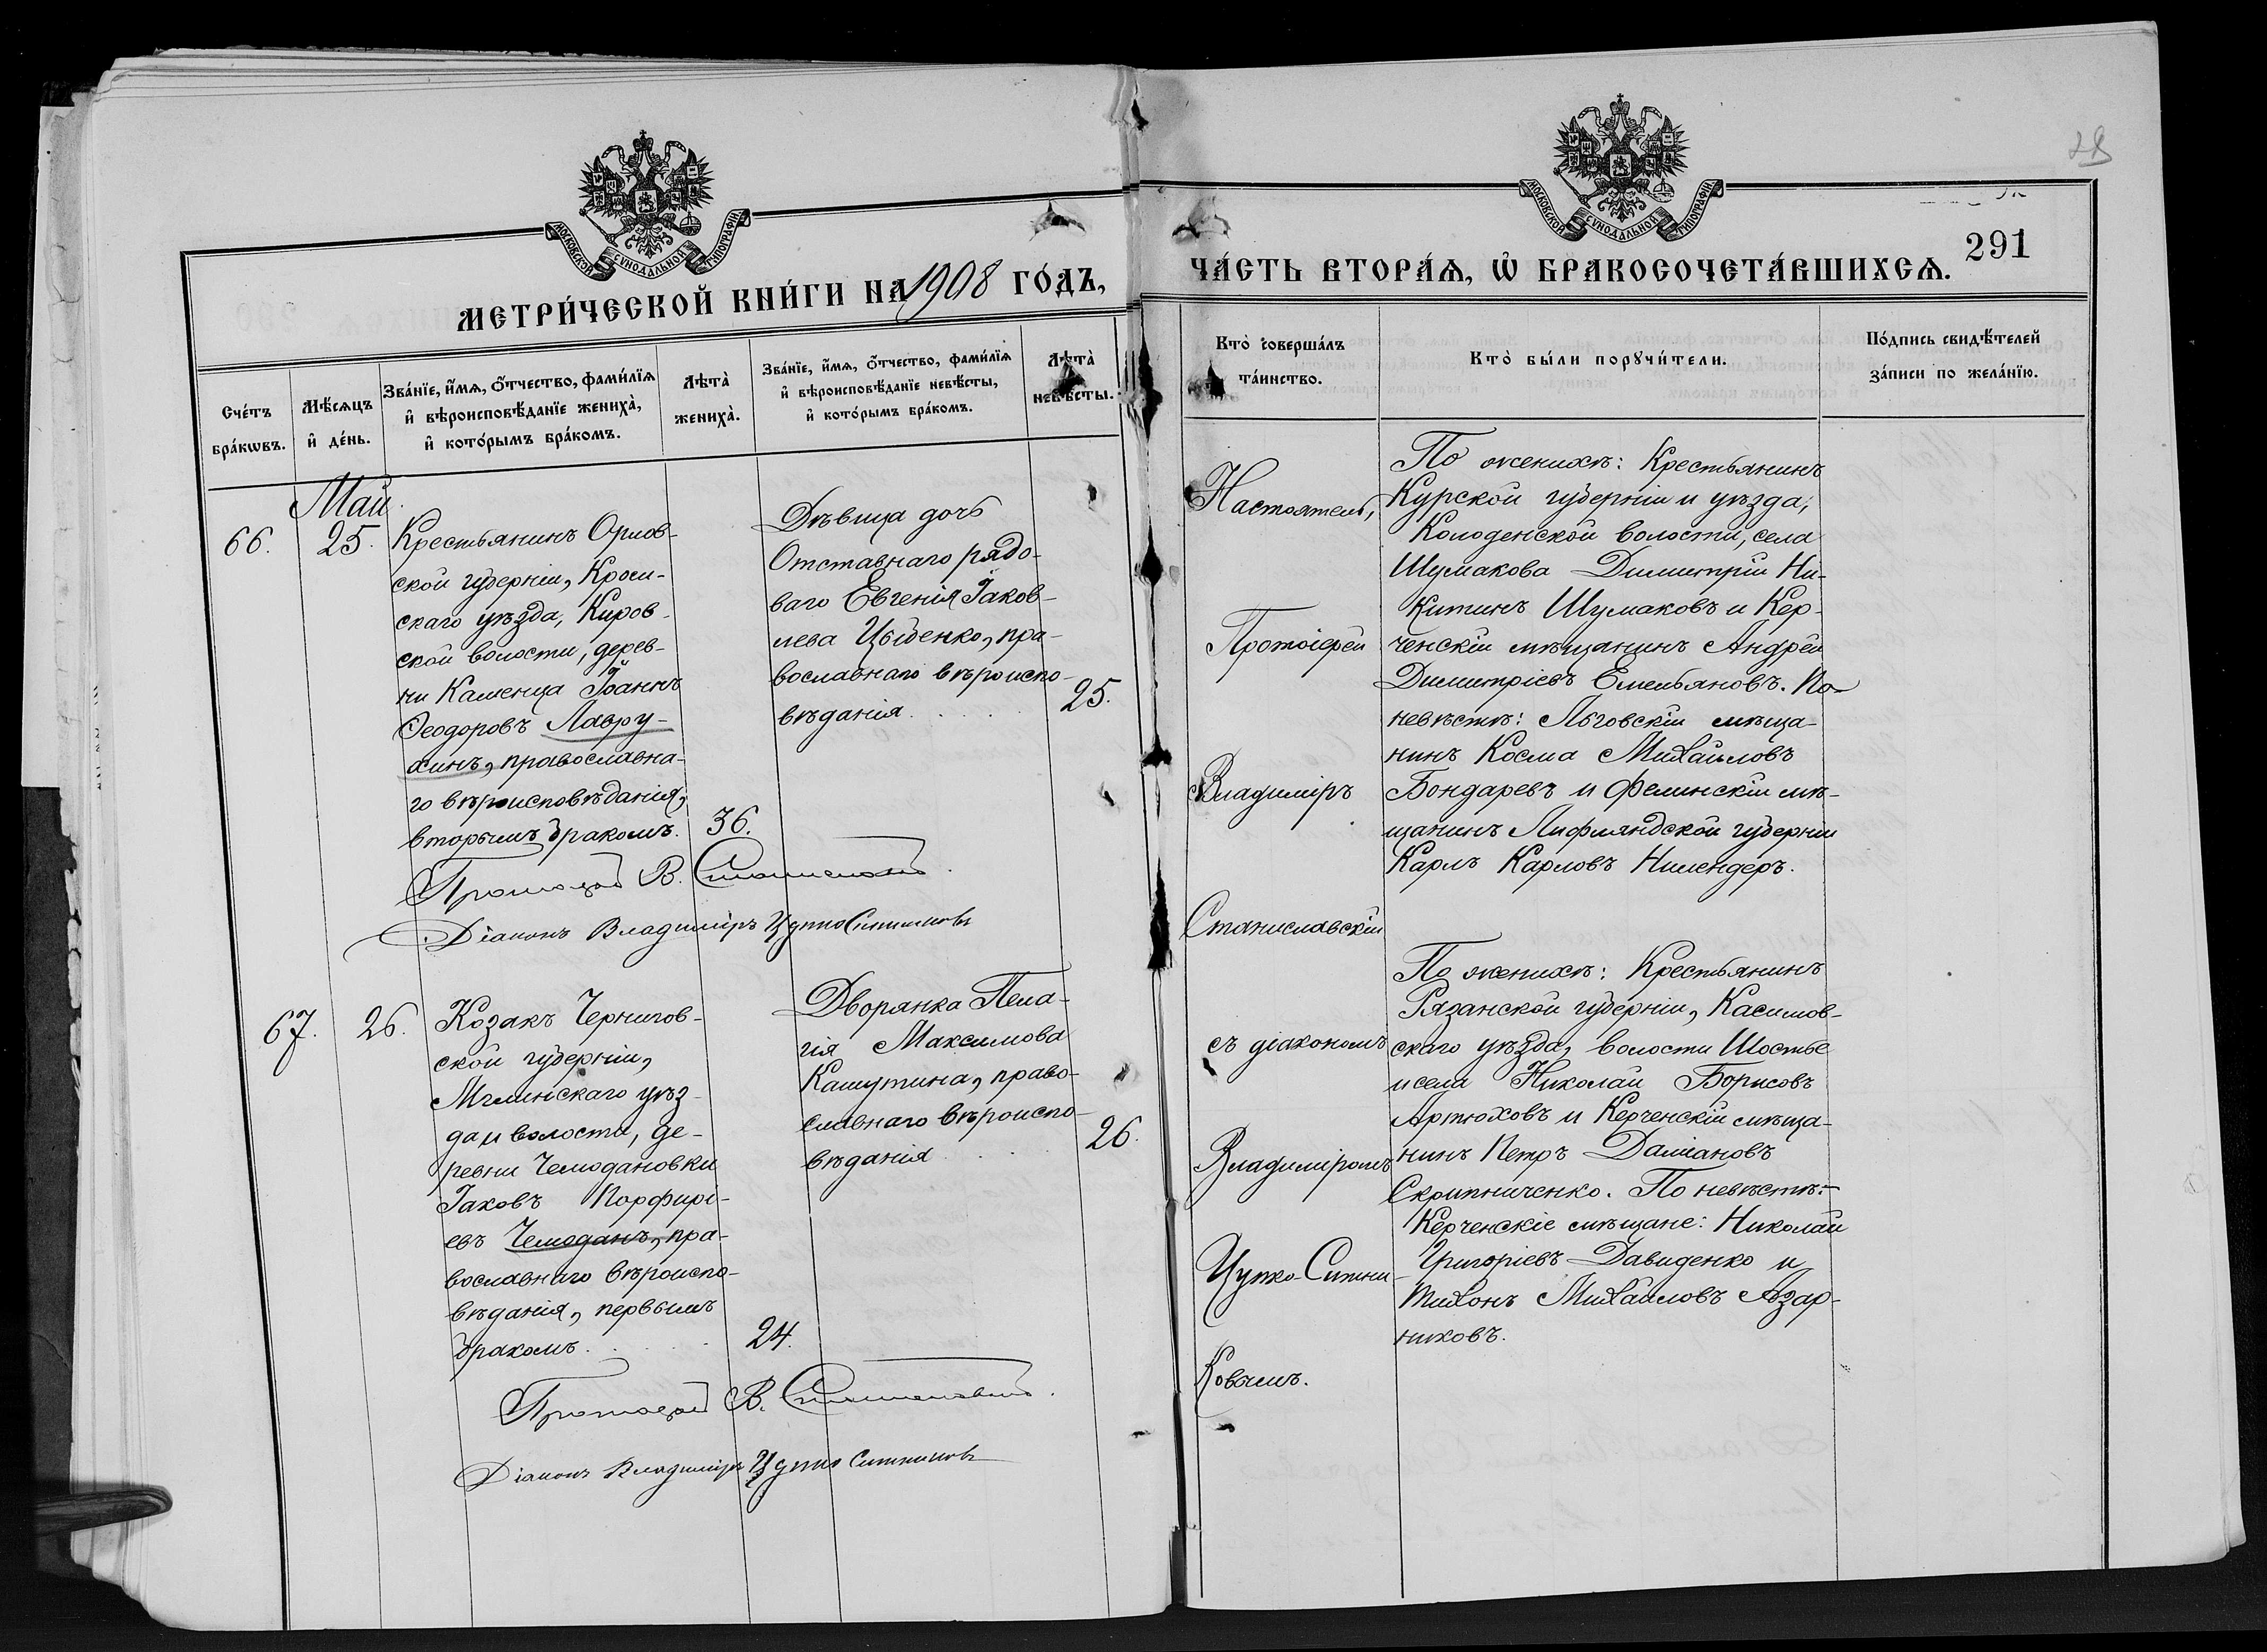 МОСКОВСКОЙ СѴНОДАЛЬНОЙ ТИПОГРАФІИ
МЕТРИ́ЧЕСКОЙ КНИ́ГИ НА 1908 ГО́ДЪ,
Сче́тъ бра́кѡвъ.
Мѣ́сѧцъ и҆ де́нь.
Зва́нїе, и҆́мѧ, ѻ҆́тчество, фами́лїѧ
и҆ вѣроисповѣ́данїе жениха̀,
и҆ кото́рымъ бра́комъ.
Лѣта̀ жениха̀.
Зва́нїе, и҆́мѧ, ѻ҆́тчество, фами́лїѧ
и҆ вѣроисповѣ́данїе невѣ́сты,
и҆ кото́рымъ бра́комъ.
Лѣта̀ невѣ́сты.
Май
66.
25.
Крестьянинъ Орлов-
ской губерніи, Кром-
скаго уѣзда, Киров-
ской волости, дерев-
ни Каменца Іоаннъ
Ѳеодоровъ Лавру-
хинъ, православна-
го вѣроисповѣданія,
вторымъ бракомъ.
36.
Дѣвица дочь
Отставнаго рядо-
ваго Евгенія Іаков-
лева Цыденко, пра-
вославнаго вѣроиспо-
вѣданія
25.
Протоіерей В. Станиславскій
Діаконъ Владиміръ Цупко Ситниковъ
67.
26.
Козакъ Чернигов-
ской губерніи,
Мглинскаго уѣз-
да и волости, де-
ревни Чемодановки
Іаковъ Порфирі-
евъ Чемоданъ, пра-
вославнаго вѣроиспо-
вѣданія, первымъ
бракомъ
24.
Дворянка Пела-
гія Максимова
Кашутина, право-
славнаго вѣроиспо-
вѣданія
26.
Протоіерей В. Станиславскій
Діаконъ Владиміръ Цупко Ситниковъ
28
МОСКОВСКОЙ СѴНОДАЛЬНОЙ ТИПОГРАФІИ
ЧА́СТЬ ВТОРА́Ѧ, Ѡ҆ БРАКОСОЧЕТА́ВШИХСѦ.
291
Кто̀ соверша́лъ
та́инство.
Кто̀ бы́ли порꙋчи́тели.
По́дпись свидѣ́телей
за́писи по жела́нїю.
Настоятель,
Протоіерей
Владиміръ
Станиславскій
съ діакономъ
Владиміромъ
Цупко-Ситни-
ковымъ.
По женихѣ: Крестьянинъ
Курской губерніи и уѣзда,
Колоденской волости, села
Шумакова Димитрій Ни-
китинъ Шумаковъ и Кер-
ченскій мѣщанинъ Андрей
Димитріевъ Емельяновъ. По
невѣстѣ: Льговскій мѣща-
нинъ Косма Михайловъ
Бондаревъ и Феллинскій мѣ-
щанинъ Лифляндской губерніи
Карлъ Карловъ Нилендеръ.
По женихѣ: Крестьянинъ
Рязанской губерніи, Касимов-
скаго уѣзда, волости Шостье
и села Николай Борисовъ
Артюховъ и Керченскій мѣща-
нинъ Петръ Даміановъ
Скрипниченко. По невѣстѣ:
Керченскіе мѣщане: Николай
Григоріевъ Давиденко и
Тихонъ Михайловъ Азар-
никовъ.